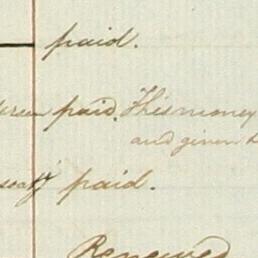 paid.
paid. This money
and given
paid.
Renewed